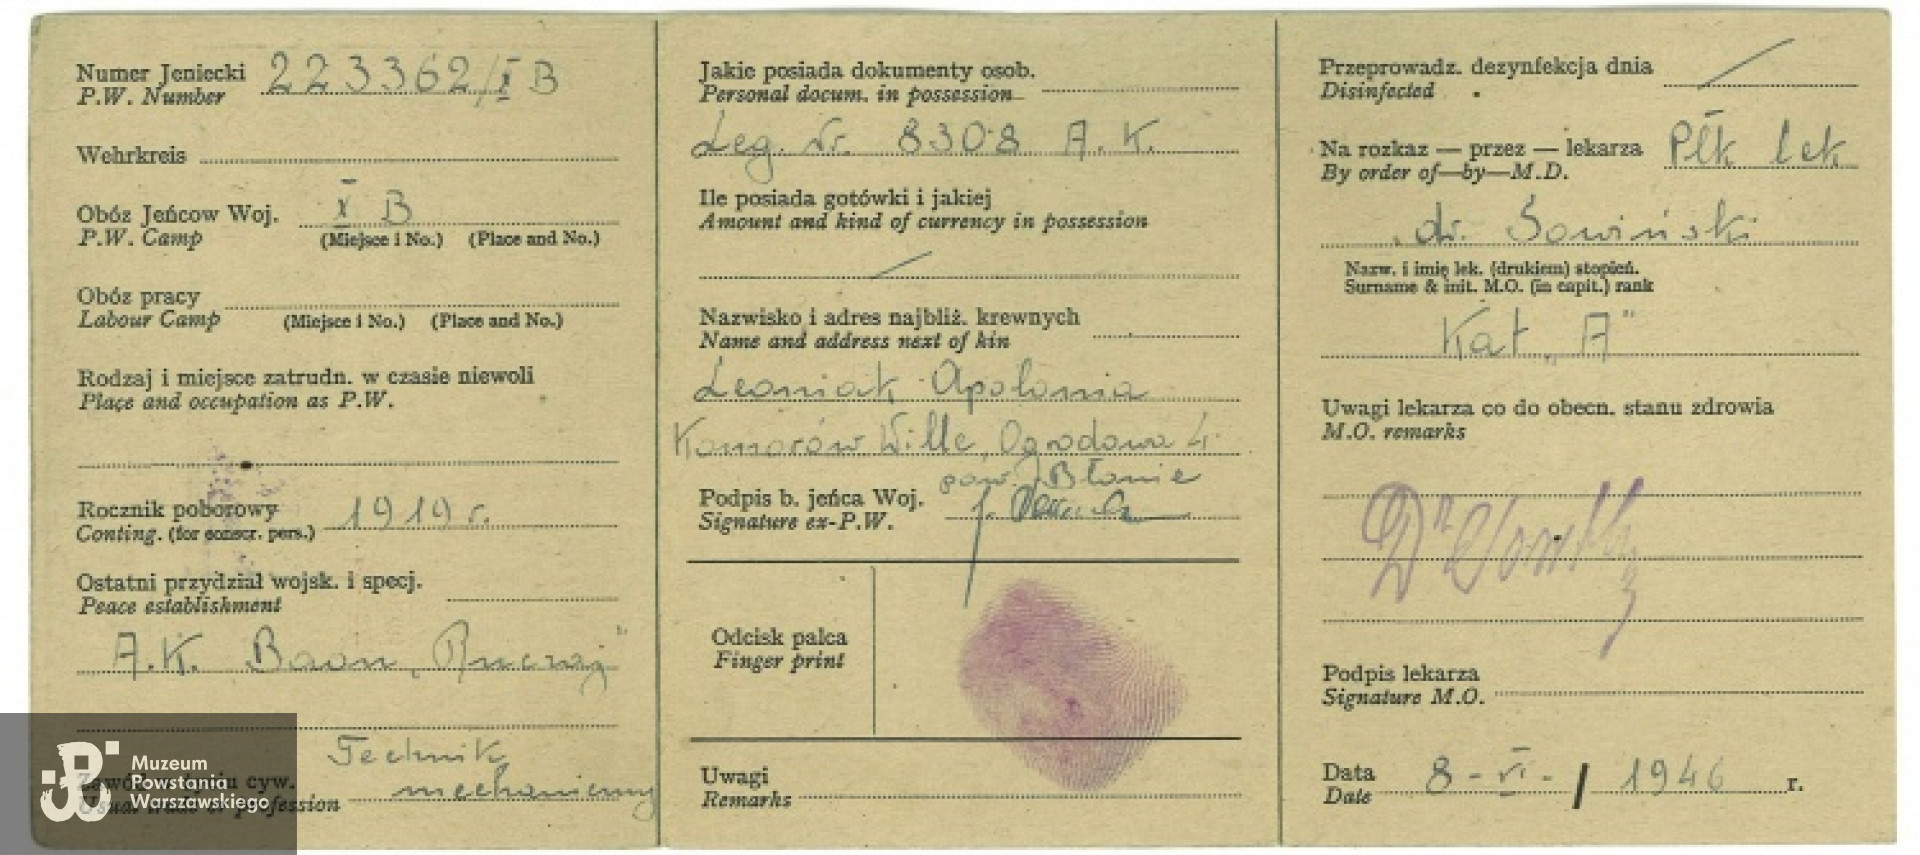 Numer Jeniecki 223362/X B
P.W. Number
Wehrkreis
Obóz Jeńcow Woj. X B
P.W. Camp (Miejsce i No.) (Place and No.)
Obóz pracy
Labour Camp (Miejsce i No.) (Place and No.)
Rodzaj i miejsce zatrudn. w czasie niewoli
Place and occupation as P.W.
Rocznik poborowy 1919 r.
Conting. (for conscr. pers.)
Ostatni przydział wojsk. i specj.
Peace establishment
A.K. Baon „Ruczaj"
Technik
cyw.
mechaniczny
Usual trade or profession
Muzeum
Powstania
Warszawskiego
Jakie posiada dokumenty osob.
Personal docum. in possession
Leg. Nr. 8308 A.K.
Ile posiada gotówki i jakiej
Amount and kind of currency in possession
Nazwisko i adres najbliż. krewnych
Name and address next of kin
Leoniak Apolonia
Komorów Wille, Ogrodowa 4.
pow. Błonie
Podpis b. jeńca Woj.
Signature ex-P.W.
Odcisk palca
Finger print
Uwagi
Remarks
Przeprowadz. dezynfekcja dnia /
Disinfected
Na rozkaz — przez — lekarza Płk lek
By order of—by—M.D.
dr. Sowiński
Nazw. i imię lek. (drukiem) stopień.
Surname & init. M.O. (in capit.) rank
Kat „A"
Uwagi lekarza co do obecn. stanu zdrowia
M.O. remarks
Podpis lekarza
Signature M.O.
Data 8-VI-/1946 r.
Date